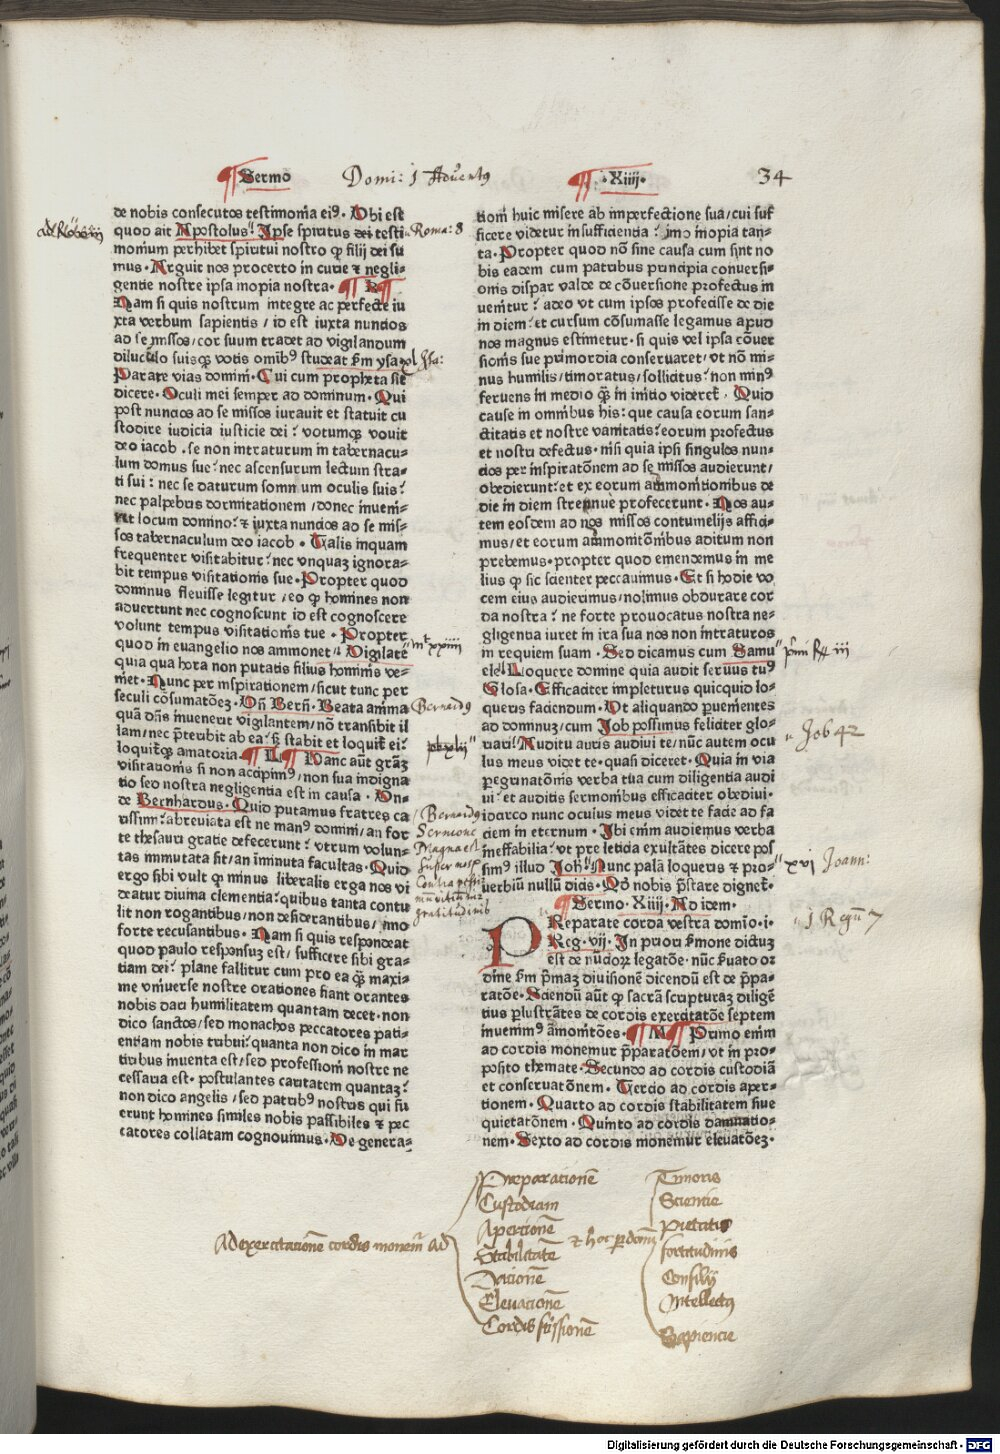 Sermo
Domi: 1 Adventꝰ
·Xiiij·
34
de nobis consecutos testimonia eiꝰ. Ubi est
quod ait Apostolus? Ipse spiritus dei testi
monium perhibet spiritui nostro ꝙ filij dei su
mus. Arguit nos procerto in curie ⁊ negli-
gentie nostre ipsa inopia nostra. K
Nam si quis nostrum integre ac perfecte iu
xta verbum sapientis / id est iuxta nuncios
ad se missos / cor suum tradet ad vigilandum
diluculo suisqꝫ votis omibꝰ studeat ẜm ysa
Parare vias domini. Cui cum propheta sit
dicere. Oculi mei semper ad dominum. Qui
post nuncios ad se missos iurauit et statuit cu
stodire iudicia iusticie dei? votumqꝫ vouit
deo iacob. se non intraturum in tabernacu-
lum domus sue? nec ascensurum lectum stra-
ti sui: nec se daturum somnum oculis suis?
nec palpebris dormitationem / donec inueni-
ret locum domino? ⁊ iuxta nuncios ad se mis-
sos tabernaculum deo iacob. Talis inquam
frequenter visitabitur? nec vnquaꝫ ignora-
bit tempus visitationis sue. Propter quod
dominus fleuisse legitur / eo ꝙ homines non
aduertunt nec cognoscunt id est cognoscere
volunt tempus visitationis tue. Propter
quod in euangelio nos ammonet? Vigilate
quia qua hora non putatis filius hominis ve-
niet. Nunc per inspirationem / sicut tunc per
seculi cōsumatōeꝫ. Dn̄ Bern̄. Beata anima
quā dn̄s inuenerit vigilantem / nō transibit il
lam / nec p̄teribit ab ea? ẜ stabit et loquit̄ ei?
loquit̄qꝫ amatoria. L Hanc aūt gr̄aꝫ
visitationis si non accipimꝰ / non sua indigna
tio sed nostra negligentia est in causa. Un-
de Bernhardus. Quid putamus fratres ca
rissimi? abreuiata est ne manꝰ domini / an for
te thesauri gratie defecerunt? vtrum volun-
tas immutata sit / an iminuta facultas. Quid
ergo sibi vult ꝙ minus liberalis erga nos vi
deatur diuina clementia? quibus tanta contu
lit non rogantibus / non desiderantibus / immo
forte recusantibus. Nam si quis respondeat
quod paulo responsuꝫ est / sufficere sibi gra-
tiam dei? plane fallitur cum pro ea ꝙ maxi-
me vniuerse nostre orationes fiant orantes
nobis dari humilitatem quantam decet. non
dico sanctos / sed monachos peccatores pati-
entiam nobis tribui? quanta non dico in mar
tiribus inuenta est / sed professioni nostre ne
cessaria est. postulantes caritatem quantaꝫ?
non dico angelis / sed patribꝰ nostris qui fu
erunt homines similes nobis passibiles ⁊ pec
catores collatam cognouimus. De genera-
tioni huic misere ab imperfectione sua / cui suf
ficere videtur insufficientia? imo inopia tan-
ta. Propter quod nō sine causa cum sint no
bis eadem cum patribus principia conuersi-
onis dispar valde de cōuersione profectus in
uenitur? adeo vt cum ipsos profecisse de die
in diem? et cursum cōsumasse legamus apud
nos magnus estimetur. si quis vel ipsa cōuer
sionis sue primordia conseruaret / vt nō mi-
nus humilis / timoratus / sollicitus? non minꝰ
feruens in medio ꝙ̄ in initio videret̄. Quid
cause in omnibus his: que causa eorum san-
ctitatis et nostre vanitatis? eorum profectus
et nostri defectus. nisi quia ipsi singulos nun-
cios per inspiratōnem ad se missos audierunt /
obedierunt? et ex eorum ammonitionibus de
die in diem strennue profecerunt. Nos au-
tem eosdem ad nos missos contumelijs affici-
mus / et eorum ammonitōnibus aditum non
prebemus. propter quod emendemus in me
lius ꝙ sic scienter peccauimus. Et si hodie vo
cem eius audierimus / nolimus obdurare cor
da nostra? ne forte prouocatus nostra ne-
gligentia iuret in ira sua nos non intraturos
in requiem suam. Sed dicamus cum Samu
ele? Loquere domine quia audit seruus tuꝰ
Glosa. Efficaciter impleturus quicquid lo-
queris faciendum. Ut aliquando p̄uenientes
ad dominuꝫ / cum Job possimus feliciter glo-
riari? Auditu auris audiui te / nūc autem ocu
lus meus videt te. quasi diceret. Quia in via
pegrinatōnis verba tua cum diligentia audi
ui? et auditis sermonibus efficaciter obediui.
idcirco nunc oculus meus videt te facie ad fa
ciem in eternum. Ibi enim audiemus verba
ineffabilia? vt pre leticia exultātes dicere pos
simꝰ illud Joh̄. Nunc palā loqueris ⁊ pro-
uerbiū nullū dicis. Qd̓ nobis p̄stare dignet̄.
Sermo. Xiiij. Ad idem.
PReparate corda vestra domīo. i.
Reg. vij. In priori ẜmone dictuꝫ
est de nūcioꝝ legatōe. nūc ẜuato or
dine ẜm p̄maꝫ diuisionē dicendū est de p̄pa-
ratōe. Sciendū aūt ꝙ sacrā scripturaꝫ diligē
tius plustrātes de cordis exercitatōe septem
inuenimꝰ āmonitōes. M Primo enim
ad cordis monemur p̄paratōem / vt in pro-
posito themate. Secundo ad cordis custodiā
et conseruatōnem. Tercio ad cordis aper-
tionem. Quarto ad cordis stabilitatem siue
quietatōnem. Quinto ad cordis damnatio-
nem. Sexto ad cordis monemur eleuatōeꝫ.
Roma: 8
mt xxiiij
Bernardꝰ
Bernardꝰ
Sermone
Job 42
xvj Joann:
1 Regū 7
Ad exercitationē cordis monem̄ ad
Præparationē
Custodiam
Apertionē
Stabilitatē
Dationē
Elevationē
Cordis scissionē
⁊ hoc per donū
Timoris
Scientie
Pietatis
fortitudinis
Consilij
Intellectꝰ
Sapiencie
Digitalisierung gefördert durch die Deutsche Forschungsgemeinschaft - DFG